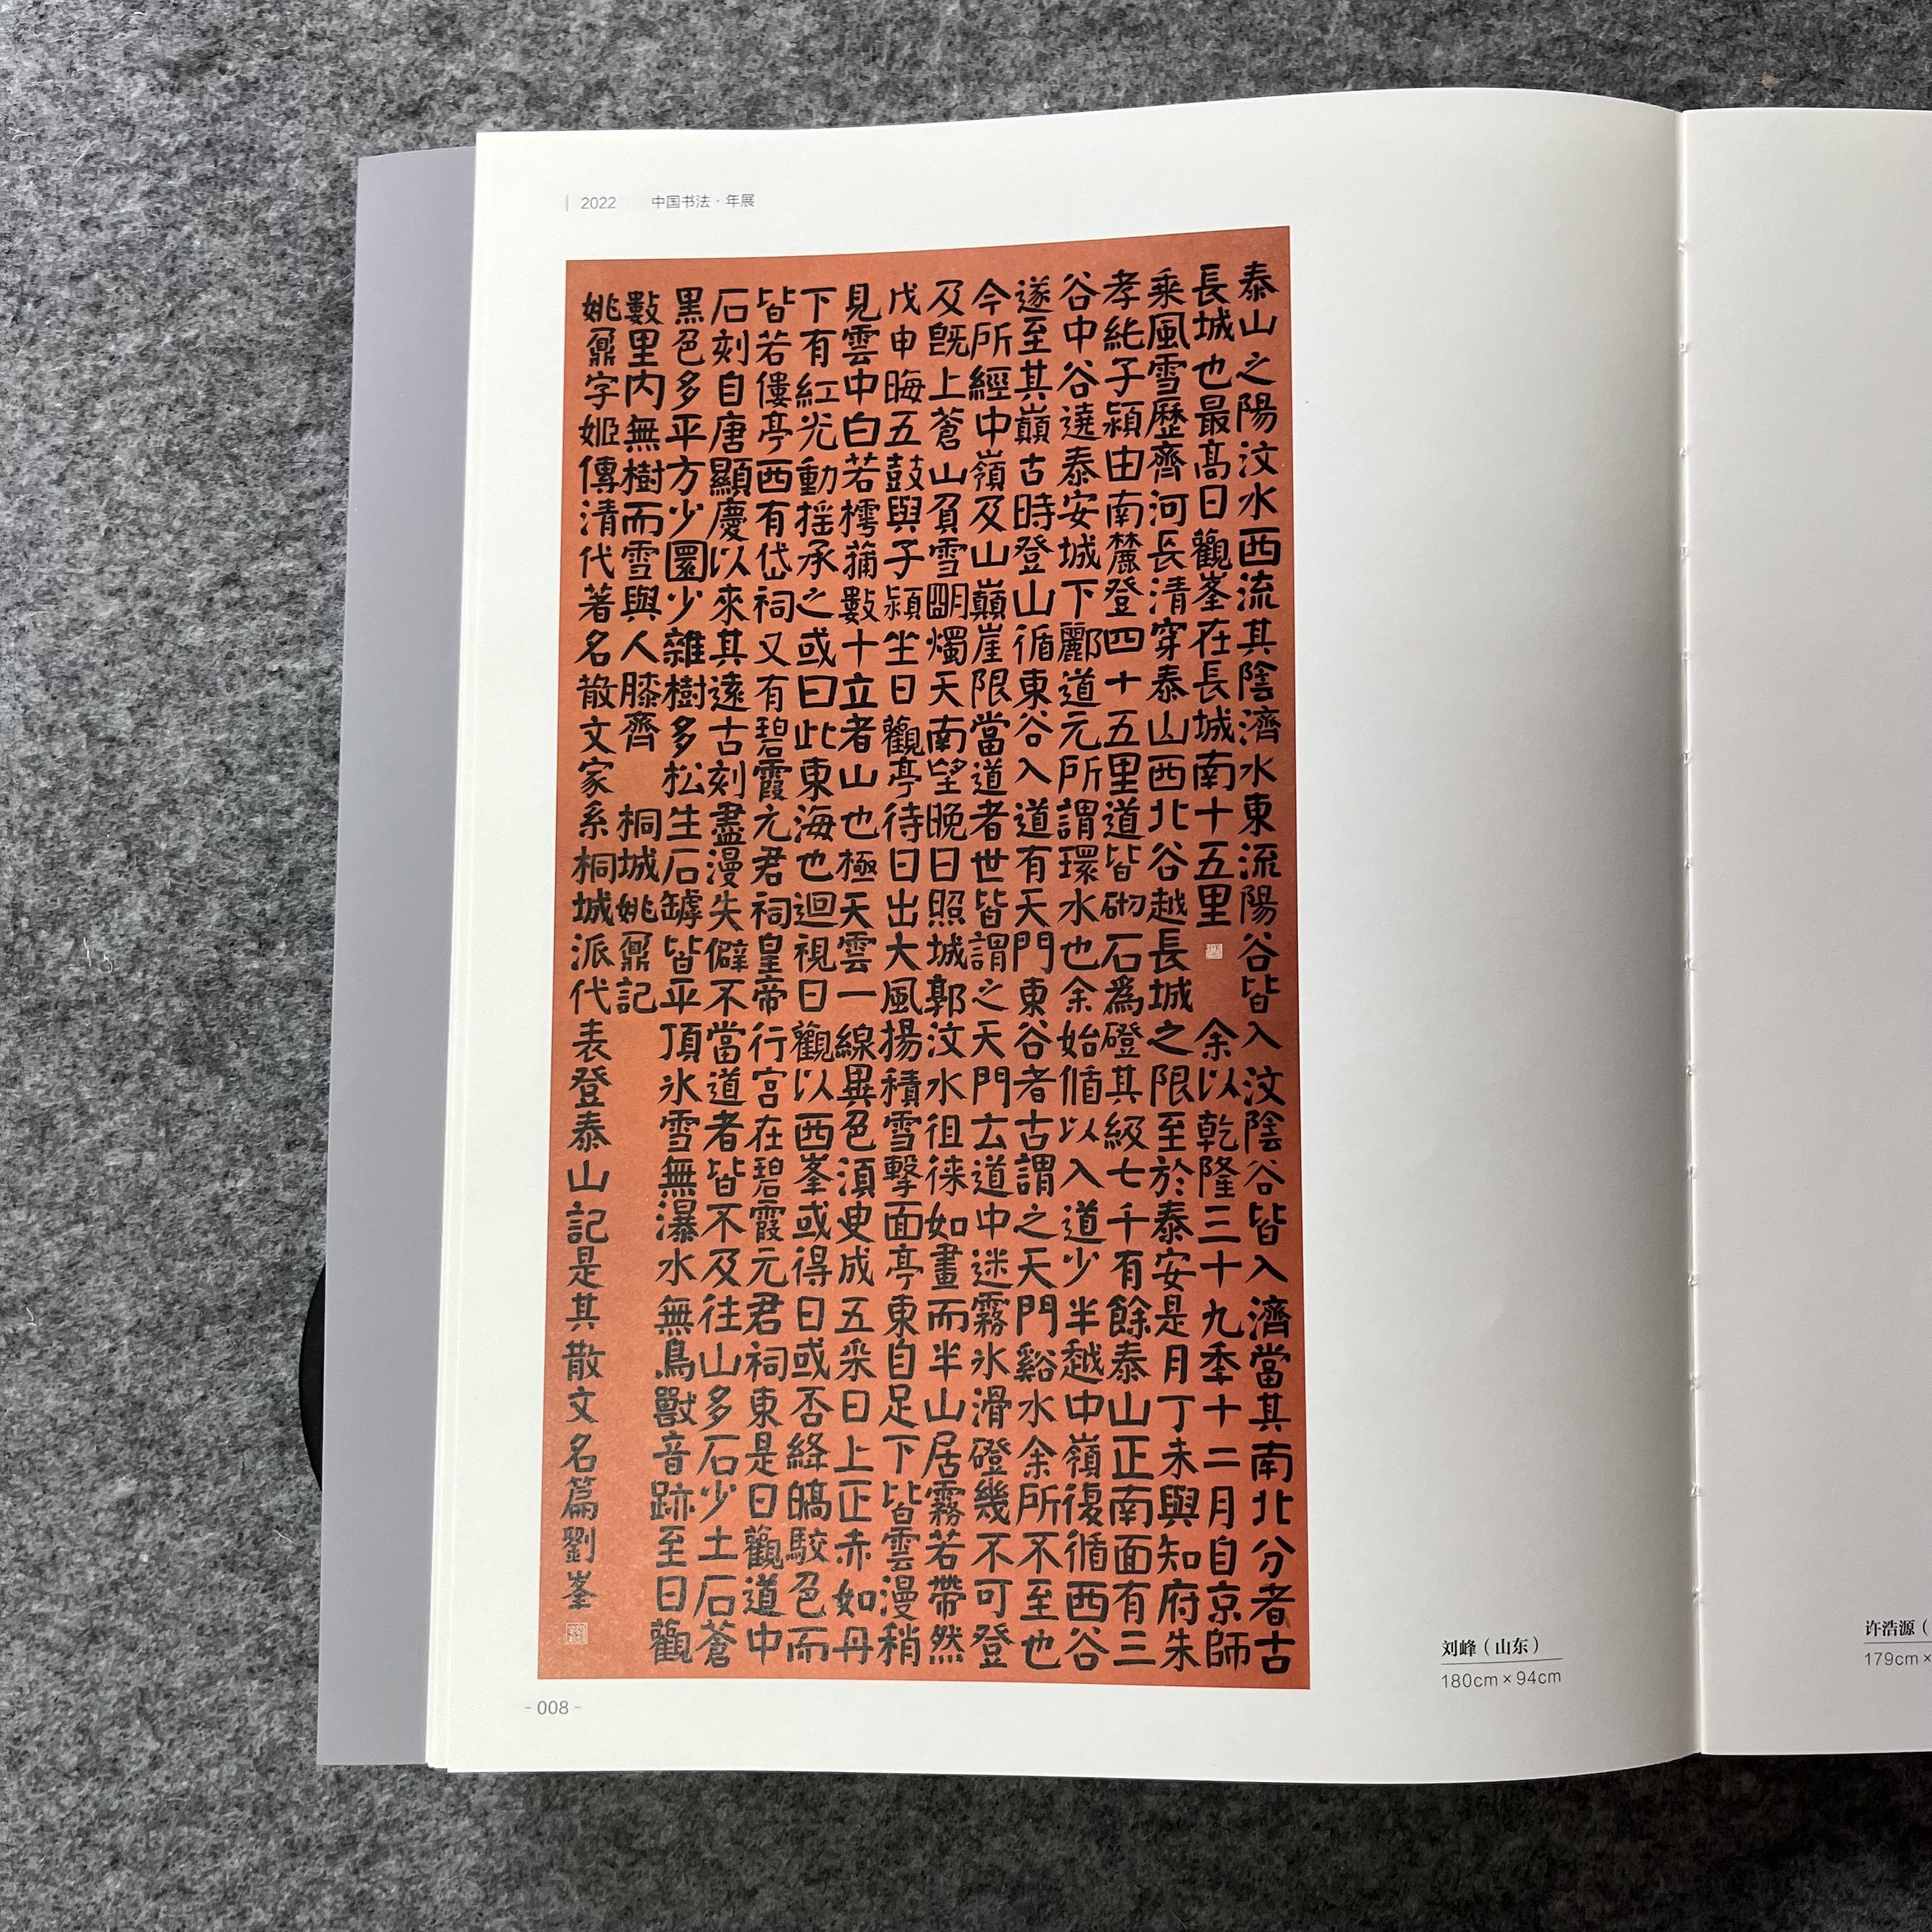 2022 中国书法·年展
泰山之陽汶水西流其陰濟水東流陽谷皆入汶陰谷皆入濟當其南北分者古
長城也最高日觀峯在長城南十五里 余以乾隆三十九秊十二月自京師
乘風雪歷齊河長清穿泰山西北谷越長城之限至於泰安是月丁未與知府朱
孝純子潁由南麓登四十五里道皆砌石爲磴其級七千有餘泰山正南面有三
谷中谷遶泰安城下酈道元所謂環水也余始循以入道少半越中嶺復循西谷
遂至其巔古時登山循東谷入道有天門東谷者古謂之天門谿水余所不至也
今所經中嶺及山巔崖限當道者世皆謂之天門云道中迷霧冰滑磴幾不可登
及旣上蒼山負雪朙燭天南望晚日照城郭汶水徂徠如畫而半山居霧若帶然
戊申晦五鼓與子潁坐日觀亭待日出大風揚積雪擊面亭東自足下皆雲漫稍
見雲中白若樗蒱數十立者山也極天雲一線異色須臾成五采日上正赤如丹
下有紅光動揺承之或曰此東海也迴視日觀以西峯或得日或否絳皜駮色而
皆若僂亭西有岱祠又有碧霞元君祠皇帝行宮在碧霞元君祠東是日觀道中
石刻自唐顯慶以來其遠古刻盡漫失僻不當道者皆不及往山多石少土石蒼
黑色多平方少圜少雜樹多松生石罅皆平頂冰雪無瀑水無鳥獸音跡至日觀
數里内無樹而雪與人膝齊 桐城姚鼐記
姚鼐字姬傳清代著名散文家系桐城派代表登泰山記是其散文名篇劉峯
刘峰（山东）
180cm×94cm
- 008 -
许浩源（
179cm×